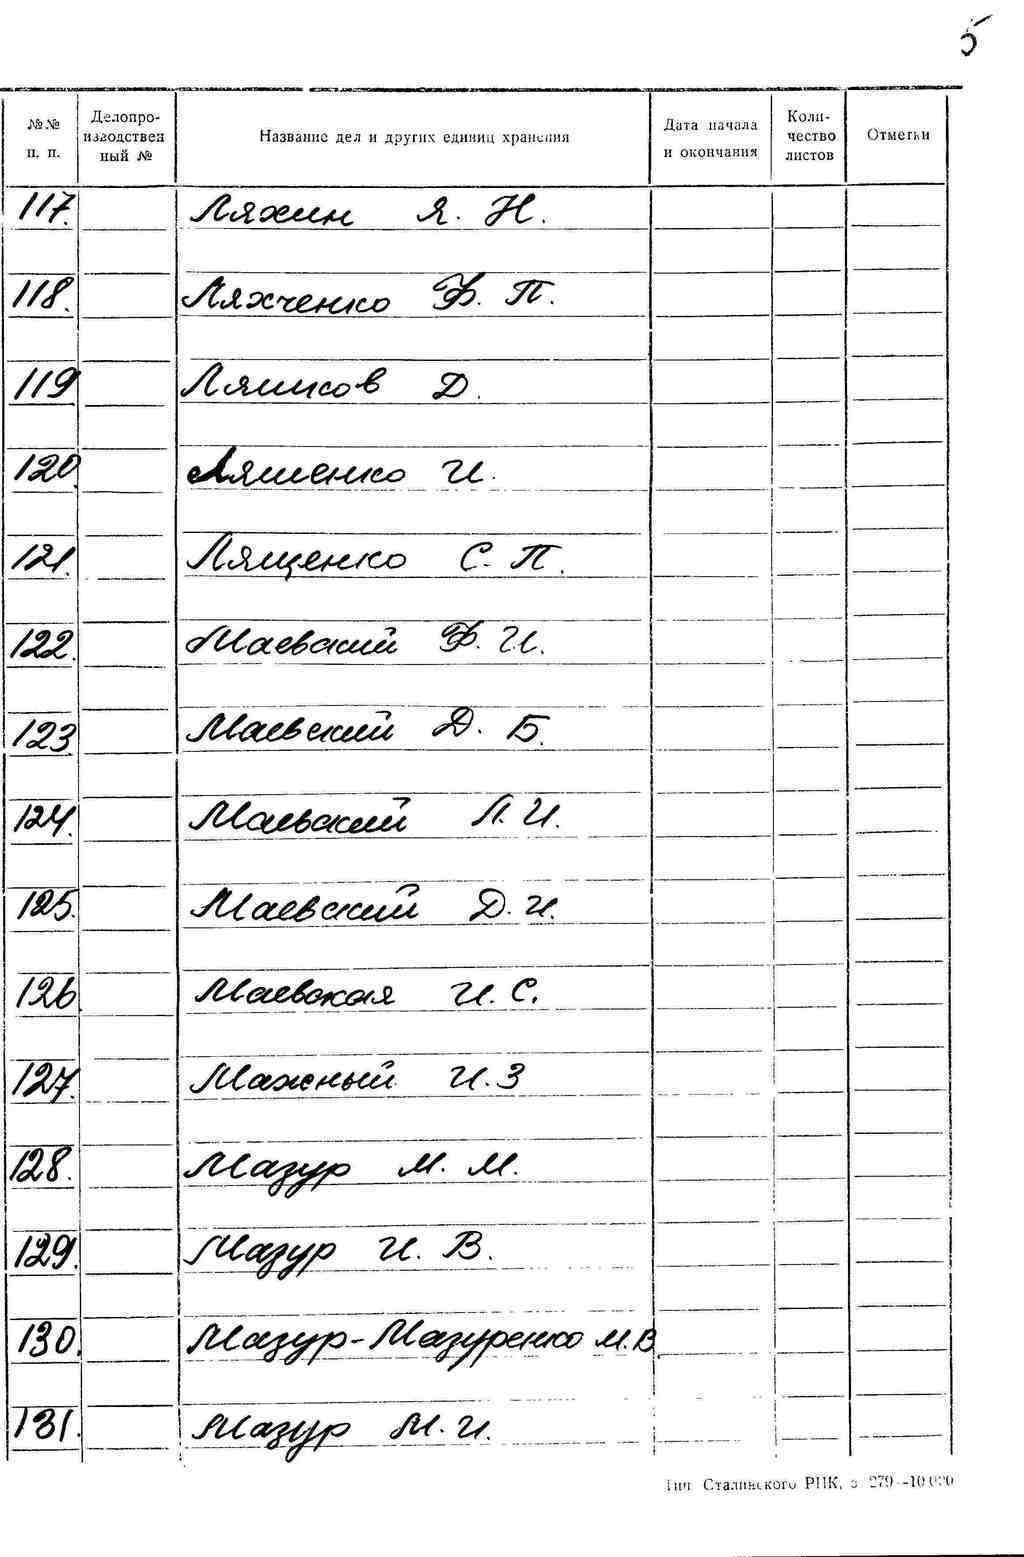 5
№№ п. п.
Делопро-
изводствен
ный №
Название дел и других единиц хранения
Дата начала
и окончания
Коли-
чество
листов
Отметки
117. Ляхин Я. Н.
118. Ляхченко Ф. П.
119 Ляшков Д.
120. Ляшенко И.
121. Лященко С. П.
122. Маевский Ф. И.
123. Маевский Д. Б.
124. Маевский Л. И.
125. Маевский Д. И.
126. Маевская И. С.
127. Мажный И. З
128. Мазур М. М.
129. Мазур И. В.
130. Мазур-Мазуренко М. В.
131. Мазур М. И.
Тип Сталинского РПК, з 279--10 000